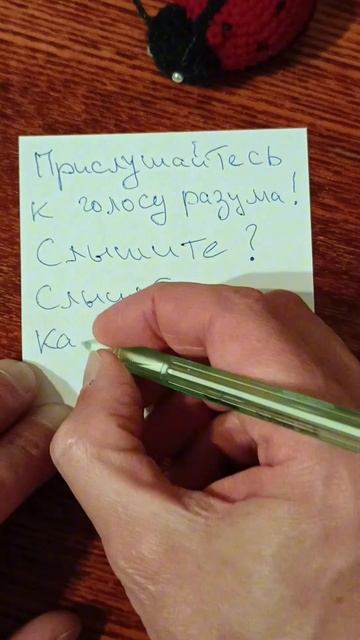 Прислушайтесь
к голосу разума!
Слышите?
Ка